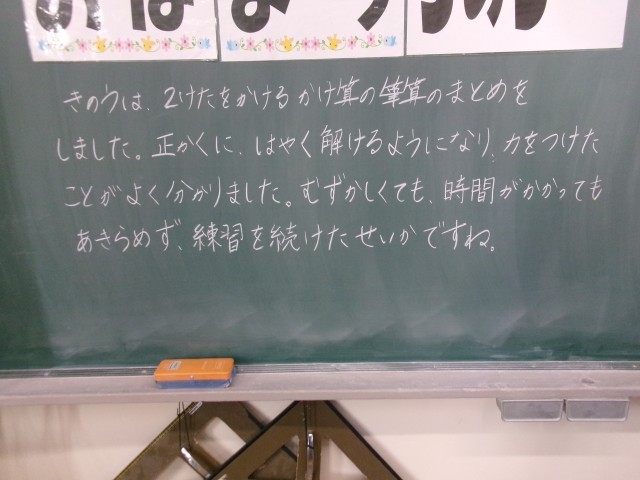 おはようございます
きのうは、2けたをかけるかけ算の筆算のまとめを
しました。正かくに、はやく解けるようになり、力をつけた
ことがよく分かりました。むずかしくても、時間がかかっても
あきらめず、練習を続けたせいかですね。